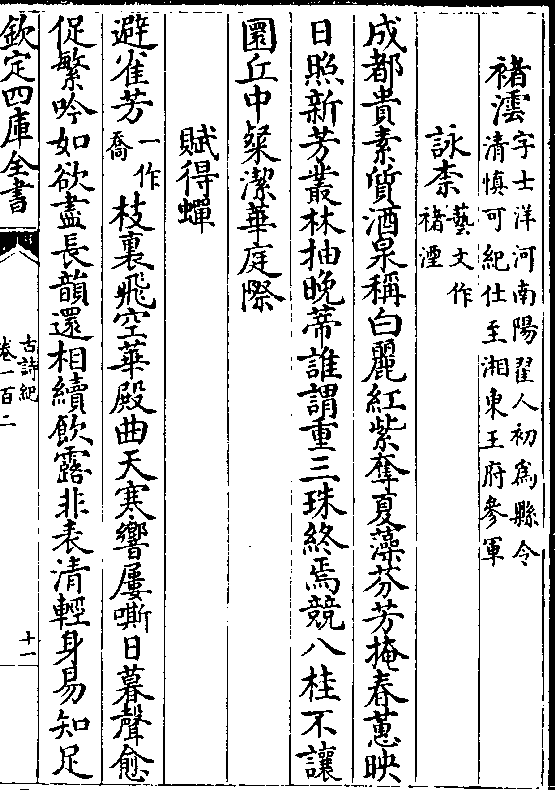 褚澐字士洋河南陽翟人初為縣令
清慎可紀仕至湘東王府參軍
詠柰藝文作
褚湮
成都貴素質酒泉稱白麗紅紫奪夏藻芬芳掩春蕙映
日照新芳叢林抽晚蒂誰謂重三珠終焉競八桂不讓
圜丘中粲潔華庭際
賦得蟬
避雀芳一作
喬枝裏飛空華殿曲天寒響屢嘶日暮聲愈
促繁吟如欲盡長韻還相續飲露非表清輕身易知足
欽定四庫全書
古詩紀
卷一百二
十一